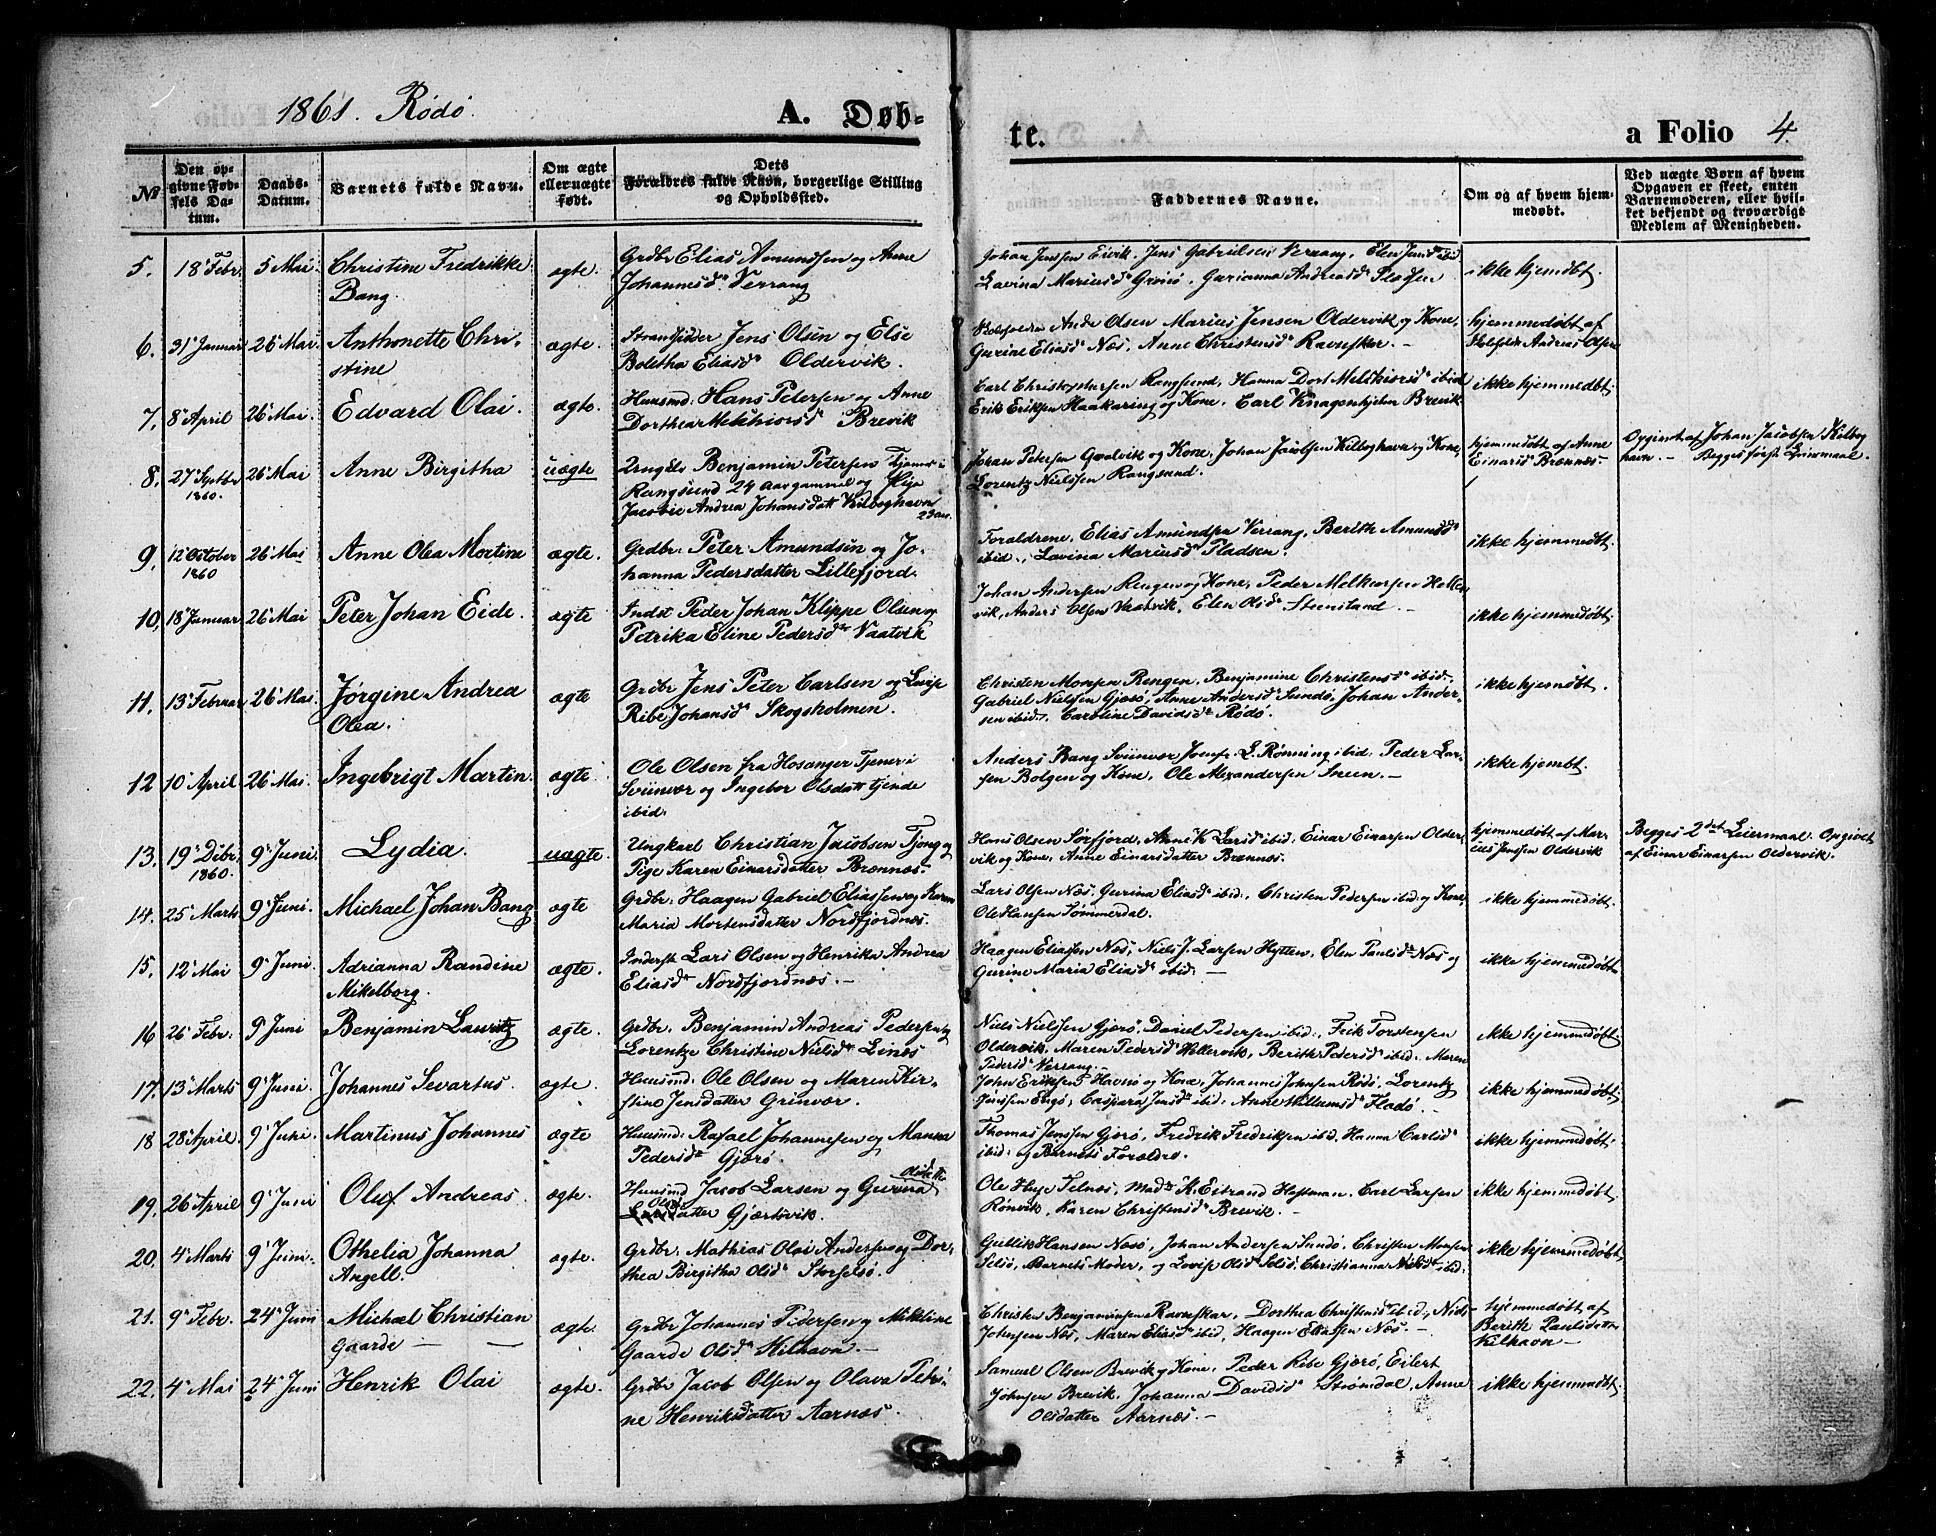 1861. Rödö. A. Døb-
te. a Folio 4.
№
Den op-
givne Fød-
sels Da-
tum.
Daabs-
Datum.
Barnets fulde Navn.
Om ægte
eller uægte
født.
Dets
Forældres fulde Navn, borgerlige Stilling
og Opholdssted.
Faddernes Navne.
Om og af hvem hjem-
medøbt.
Ved uægte Børn af hvem
Opgaven er skeet, enten
Barnemoderen, eller hvil-
ket bekjendt og troværdigt
Medlem af Menigheden.
5. 18 Febr. 5 Mai Christine Fredrikke ægte. Grdbr Elias Amundsen og Anne Johan Jenssen Eivik. Jens Gabrielsen Verrang, Elen Jensd ibid ikke hjemdøbt.
Bang. Johannesd. Verrang Lavina Mariusd Grönö. Gurianna Andreasd Pladsen
6. 31 Januar 26 Mai Anthonette Chri- ægte. Strandsidder Jens Olsen og Else Andr Olsen Marius Jensen Oldervik og Kone, hjemmedøbt af
stine Bolitha Eliasd Oldervik. Gurine Eliasd Næs. Anne Christensd Ravnskar. - Andreas Olsen
7. 8 April 26 Mai Edvard Olai. ægte. Huusmd: Hans Petersen og Anne Carl Christophersen Rangsund, Hanna Dort Melkiorsd ibid ikke hjemmedøbt.
Dorthea Melchiorsd Brevik Erik Eriksen Haakaring og Kone. Carl Knagenhjelm Brevik
8. 27 Septbr 26 Mai Anne Birgitha uægte Ungkl. Benjamin Petersen Tjener i Johan Petersen Gaalvik og Kone, Johan Jacobsen Kilboghavn og Kone, hjemmedøbt af Anne Opgivet af Johan Jacobsen Kilbog
1860. Rangsund 24 Aar gammel og Pige Lorentz Nielssen Rangsund Einarsd Brænnæs. havn. - Begges første Leiermaal.
Jacobie Andrea Johansdatt Kilboghavn
23 aar.
9. 12 October 26 Mai Anne Olea Mortine ægte. Grdbr: Peter Amundsen og Jo- Foraldrene, Elias Amundsen Verrang, Berith Amundsd ikke hjemmedøbt.
1860 hanna Pedersdatter Lillefjord. ibid., Lavina Mariusd Pladsen.
10. 18 Januar 26 Mai Peter Johan Eide. ægte Indst Peder Johan Klippe Olsen og Johan Andersen Rengen og Kone, Peder Melkiorsen Heller ikke hjemmedøbt.
Petrika Eline Pedersd Vaatvik vik, Anders Olsen Vaatvik, Elen Olsd Steensland. -
11. 13 Februar 26 Mai Jörgine Andrea ægte Grdbr Jens Peter Carlsen og Lovise Christen Monsen Rengen, Benjamine Christensd ibid. ikke hjemdøbt.
Olea. Ribe Johansd Skogsholmen. Gabriel Nielsen Gjærö, Anne Andersd Sundö, Johan Ander-
sen ibid. Caroline Davidsd Rödö.
12 10 April 26 Mai. Ingebrigt Martin. ægte. Ole Olsen fra Hosanger Tjener i Anders Bang Svinvær Jomfr. L. Rønning ibid. Peder Lar- ikke hjembt.
Svinvær og Ingebor Olsdatt tjende sen Bolgen og Kone, Ole Alexandersen Sneen. -
ibid.
13. 19 Debr. 9 Juni. Lydia. uægte. Ungkarl Christian Jacobsen Tjong og Hans Olsen Sörfjord, Anne K Larsd ibid. Einar Einarsen Older- hjemmedøbt af Mar- Begges 2det Leiermaal. Opgivet
1860. Pige Karen Einarsdatter Brænnæs. vik og Kone, Anne Einarsdatter Brænnæs. ius Jenssen Oldervik af Einar Einarsen Oldervik.
14. 25 Marts 9 Juni. Michael Johan Bang ægte Grdbr. Haagen Gabriel Eliassen og Karen Lars Olsen Næs, Gurina Eliasd ibid., Christen Pedersen ibid. og Kone, ikke hjemmedøbt.
Maria Mortensdatter Nordfjordnæs. Ole Hansen Sommerdal.
15. 12 Mai 9 Juni. Adrianna Randine ægte. Inderst Lars Olsen og Henrika Andrea Haagen Eliassen Næs, Niels J. Larsen Hytten, Elen Paulsd Næs og ikke hjemmedøbt
Mikelborg. Eliasd Nordfjordnæs. - Gurine Maria Eliasd ibid. -
16 26 Febr. 9 Juni Benjamin Lauritz ægte. Grdbr. Benjamin Andreas Pedersen og Niels Nielsen Gjærö, Daniel Pedersen ibid., Erik Torstensen ikke hjemmedøbt.
Lorentze Christine Nielsd Linæs Oldervik, Maren Pedersd Hellervik, Berith Pedersd ibid. Maren
Pedersd Verrang. -
17. 13 Marts 9 Juni Johannes Sevartus. ægte. Huusmd: Ole Olsen og Maren Kir- John Eriksen Havnö og Kone, Johannes Johnsen Rödö, Lorentz ikke hjemmedøbt
stine Jensdatter Grinvær. Jenssen Engö, Caspara Jensd ibid. Anne Willumsd Flatö. -
18 28 April. 9 Juni. Martinus Johannes ægte Huusmd: Rafael Johannesen og Manna Thomas Jenssen Gjærö, Fredrik Fredriksen ibid. Hanna Carlsd ikke hjemmedøbt.
Pedersd Gjærö. ibid. og Barnets Forældre.
19. 26 April 9 Juni Oluf Andreas. ægte. Huusmd Jacob Larsen og Gurina Ole Huse Telnæs, Mads K. Eitrand Hestman. Carl Larsen ikke hjemmedøbt
Larsdatter Gjærsvik. Rönvik, Karen Christensd Brevik.
20. 4 Marts 9 Juni. Othelia Johanna ægte. Grdbr. Mathias Olai Andersen og Dor- Gullik Hansen Næsö, Johan Andersen Sundö, Christen Monsen ikke hjemmedøbt
Angell. thea Birgitha Olsd Storselsö. Selsö, Barnets Moder, og Lovise Olsd Selsö Christianna Nielsd ibid.
21. 9 Febr. 24 Juni Michael Christian ægte. Grdbr Johannes Pedersen og Mikeline Christen Benjaminsen Ravnskar, Dorthea Christensd ibid., Niels hjemmedøbt af
Gaarde - - Gaarde Olsd Kilhavn. - Johnsen Næs, Maren Eliasd ibid, Haagen Eliassen Næs. - Berithe Paulsdatter
Kilhavn -
22. 4 Mai 24 Juni Henrik Olai ægte. Grdbr Jacob Olsen og Olava Petri- Samuel Olsen Brevik og Kone, Peder Ribe Gjærö, Eilert ikke hjemmedøbt
ne Henriksdatter Aarnæs. Johnsen Brevik, Johanna Davidsd Strömdal, Anne
Olsdatter Aarnæs. -